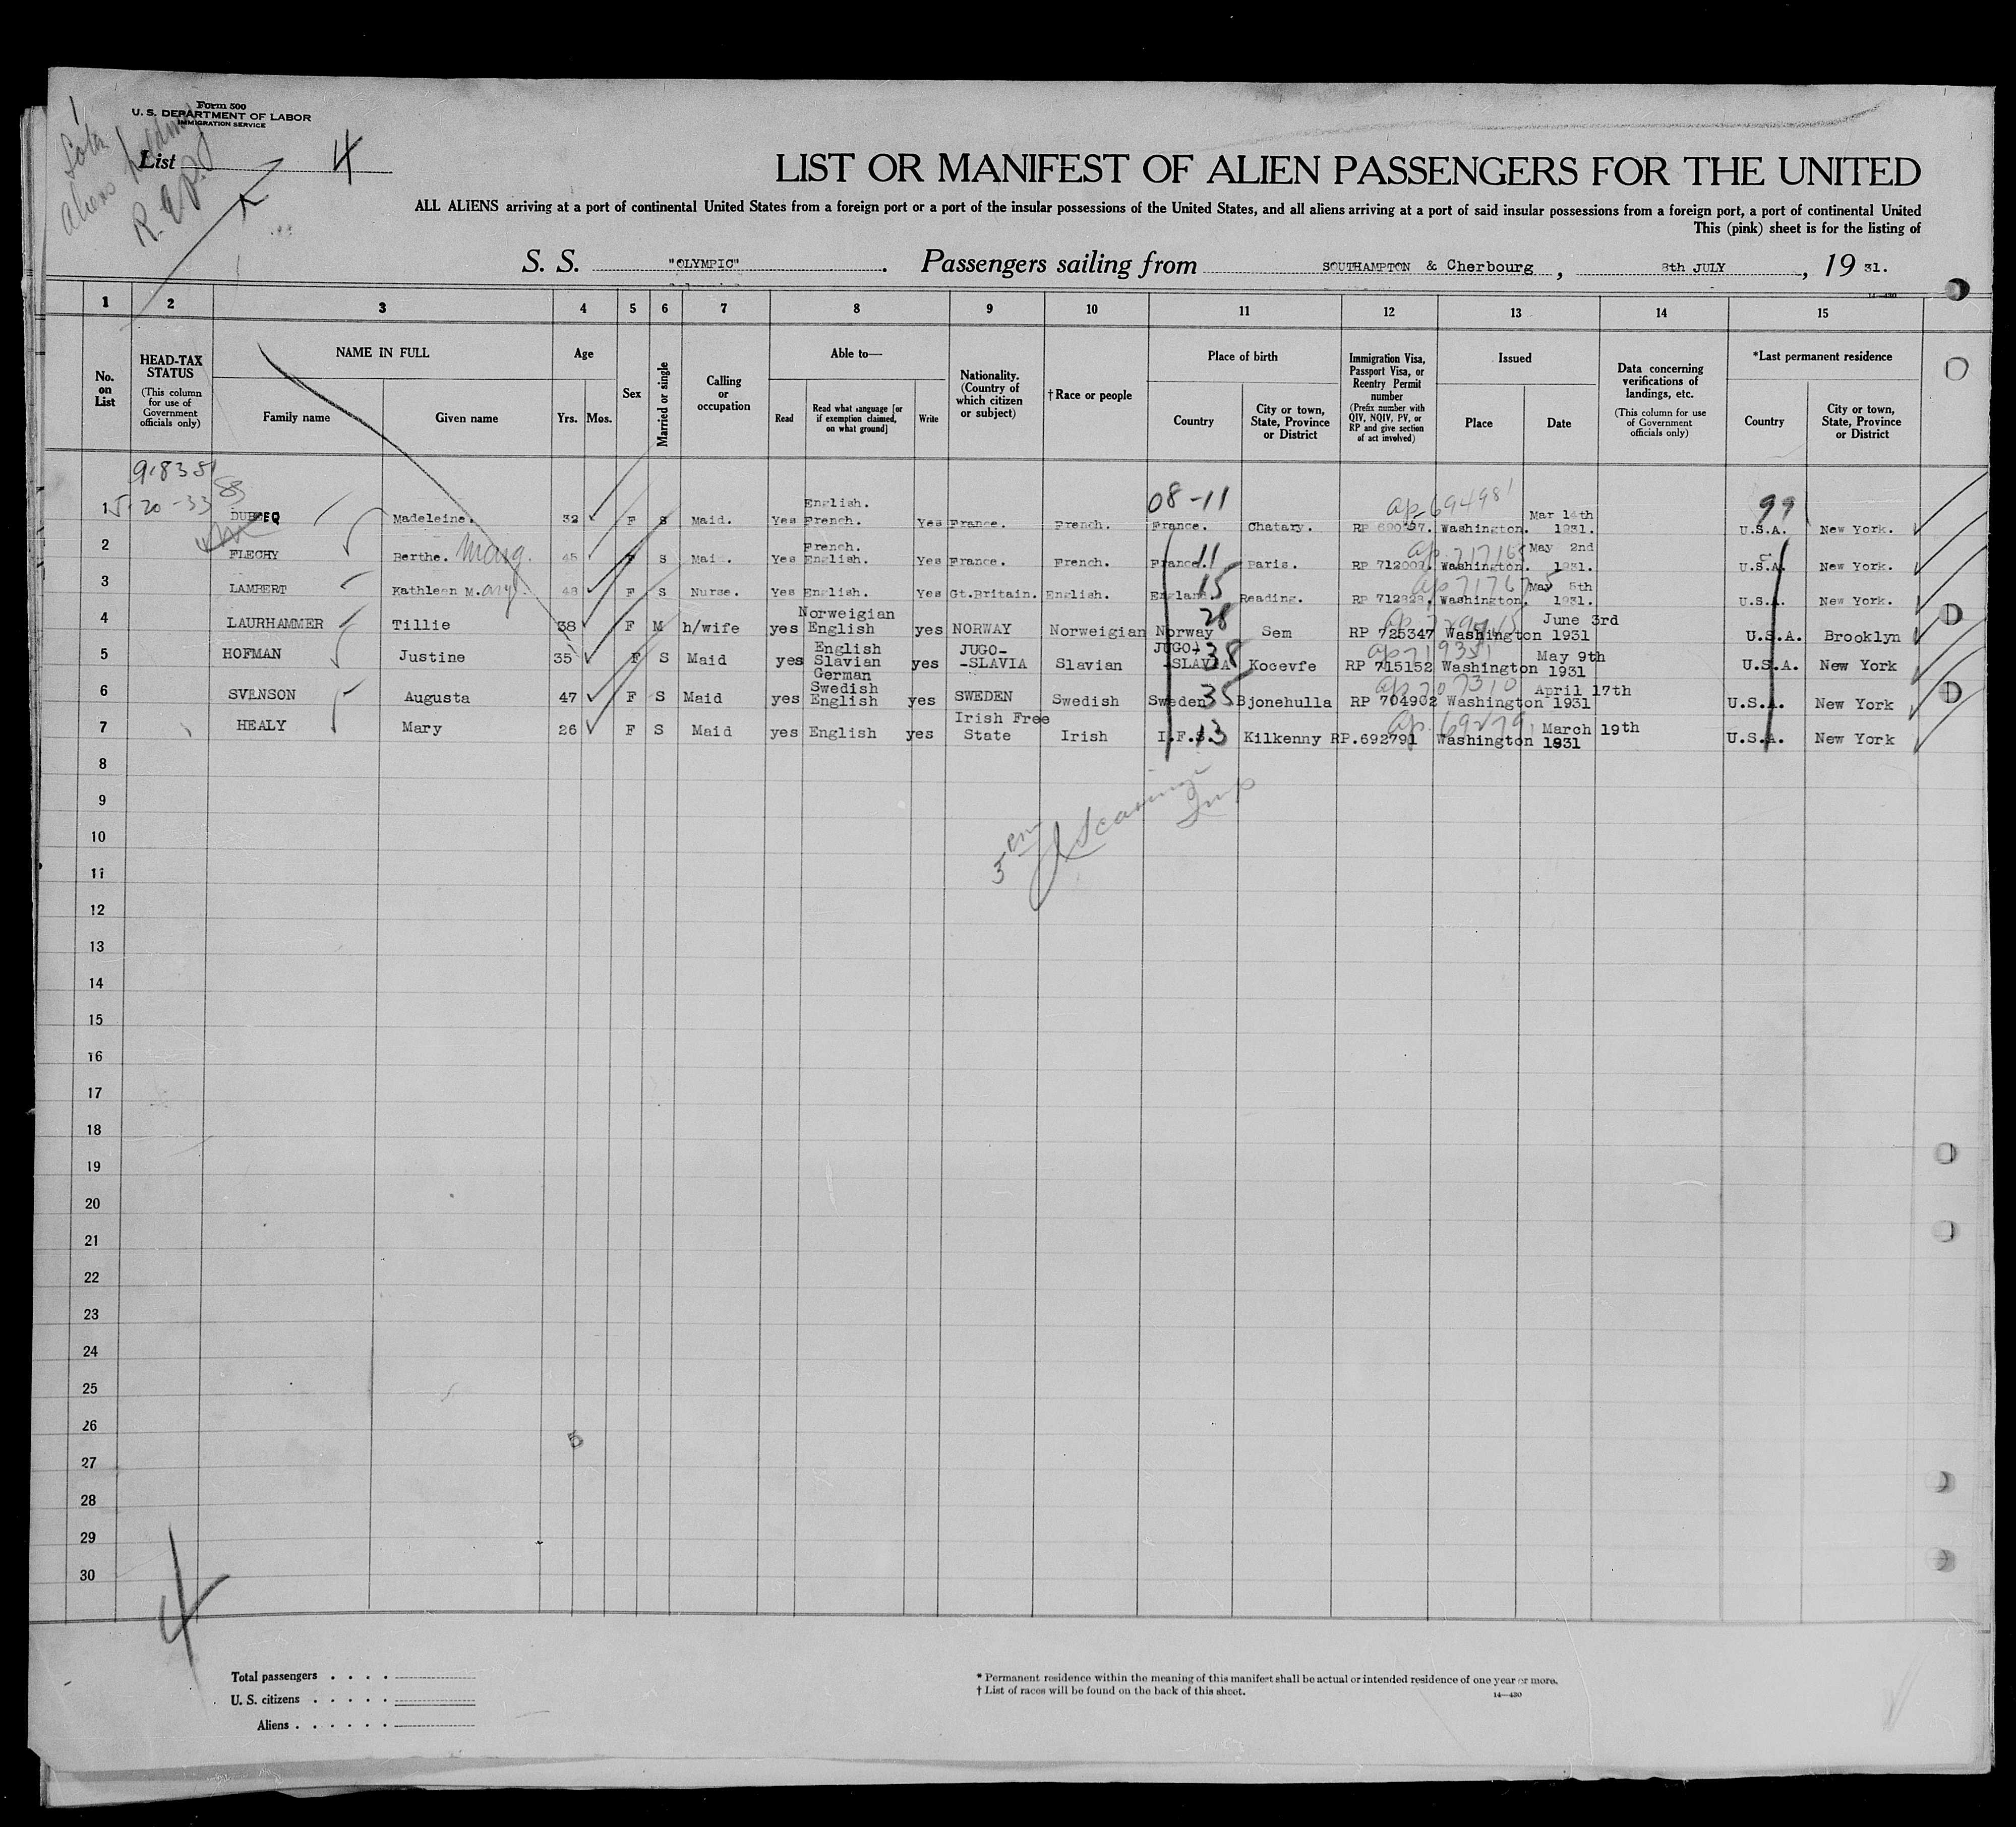 Form 500
U. S. DEPARTMENT OF LABOR
IMMIGRATION SERVICE
List 4
R. P.
LIST OR MANIFEST OF ALIEN PASSENGERS FOR THE UNITED
ALL ALIENS arriving at a port of continental United States from a foreign port or a port of the insular possessions of the United States, and all aliens arriving at a port of said insular possessions from a foreign port, a port of continental United
This (pink) sheet is for the listing of
S. S. "OLYMPIC". Passengers sailing from SOUTHAMPTON & Cherbourg, 8th JULY, 19 31.
1 2 3 4 5 6 7 8 9 10 11 12 13 14 15
No. on List
HEAD-TAX STATUS
(This column for use of Government officials only)
NAME IN FULL
Family name
Given name
Age
Yrs.
Mos.
Sex
Married or single
Calling or occupation
Able to—
Read
Read what language [or if exemption claimed, on what ground]
Write
Nationality. (Country of which citizen or subject)
†Race or people
Place of birth
Country
City or town, State, Province or District
Immigration Visa, Passport Visa, or Reentry Permit number
(Prefix number with QIV, NQIV, PV, or RP and give section of act involved)
Issued
Place
Date
Data concerning verifications of landings, etc.
(This column for use of Government officials only)
*Last permanent residence
Country
City or town, State, Province or District
08-11
99
1 Madeleine. 32 F S Maid. Yes English. French. Yes France. French. France. Chatary. RP Washington. Mar 14th 1931. U.S.A. New York.
2 FLECHY Berthe. Marg. 45 F S Yes French. English. Yes France. French. France. 11 Paris. RP Washington. May 2nd 1931. U.S.A. New York.
3 LAMBERT Kathleen M.ary. 48 F S Nurse. Yes English. Yes Gt.Britain. English. England. 15 Reading. RP Washington. May 5th 1931. U.S.A. New York.
4 LAURHAMMER Tillie 38 F M h/wife yes Norweigian English yes NORWAY Norweigian Norway 28 Sem RP 725347 Washington June 3rd 1931 U.S.A. Brooklyn
5 HOFMAN Justine 35 F S Maid yes English Slavian German yes JUGO-
-SLAVIA Slavian JUGO-
-SLAVIA 38 Kocevfe RP 715152 Washington May 9th 1931 U.S.A. New York
6 SVENSON Augusta 47 F S Maid yes Swedish English yes SWEDEN Swedish Sweden 35 Bjonehulla RP 704902 Washington April 17th 1931 U.S.A. New York
7 HEALY Mary 26 F S Maid yes English yes Irish Free State Irish I.F.S. 13 Kilkenny RP.692791 Washington March 19th 1931 U.S.A. New York
8
9
10
11
12
13
14
15
16
17
18
19
20
21
22
23
24
25
26
27
28
29
30
5
4
Total passengers . . . .
U. S. citizens . . . . .
Aliens . . . . . .
* Permanent residence within the meaning of this manifest shall be actual or intended residence of one year or more.
† List of races will be found on the back of this sheet.
14—430